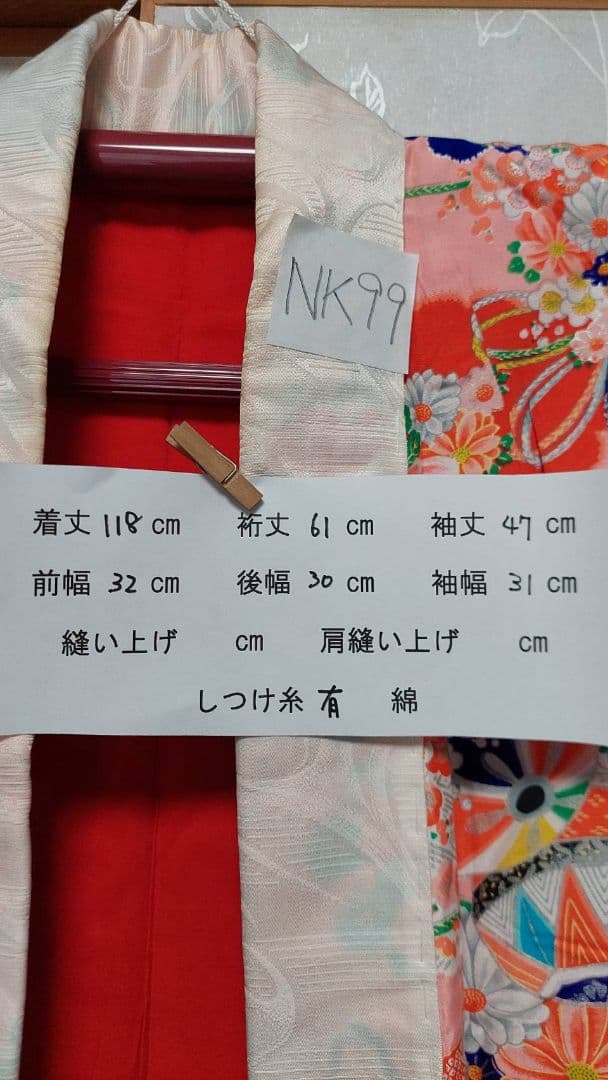 NK99
着丈 118 cm 裄丈 61 cm 袖丈 47 cm
前幅 32 cm 後幅 30 cm 袖幅 31 cm
縫い上げ cm 肩縫い上げ cm
しつけ糸 有 綿